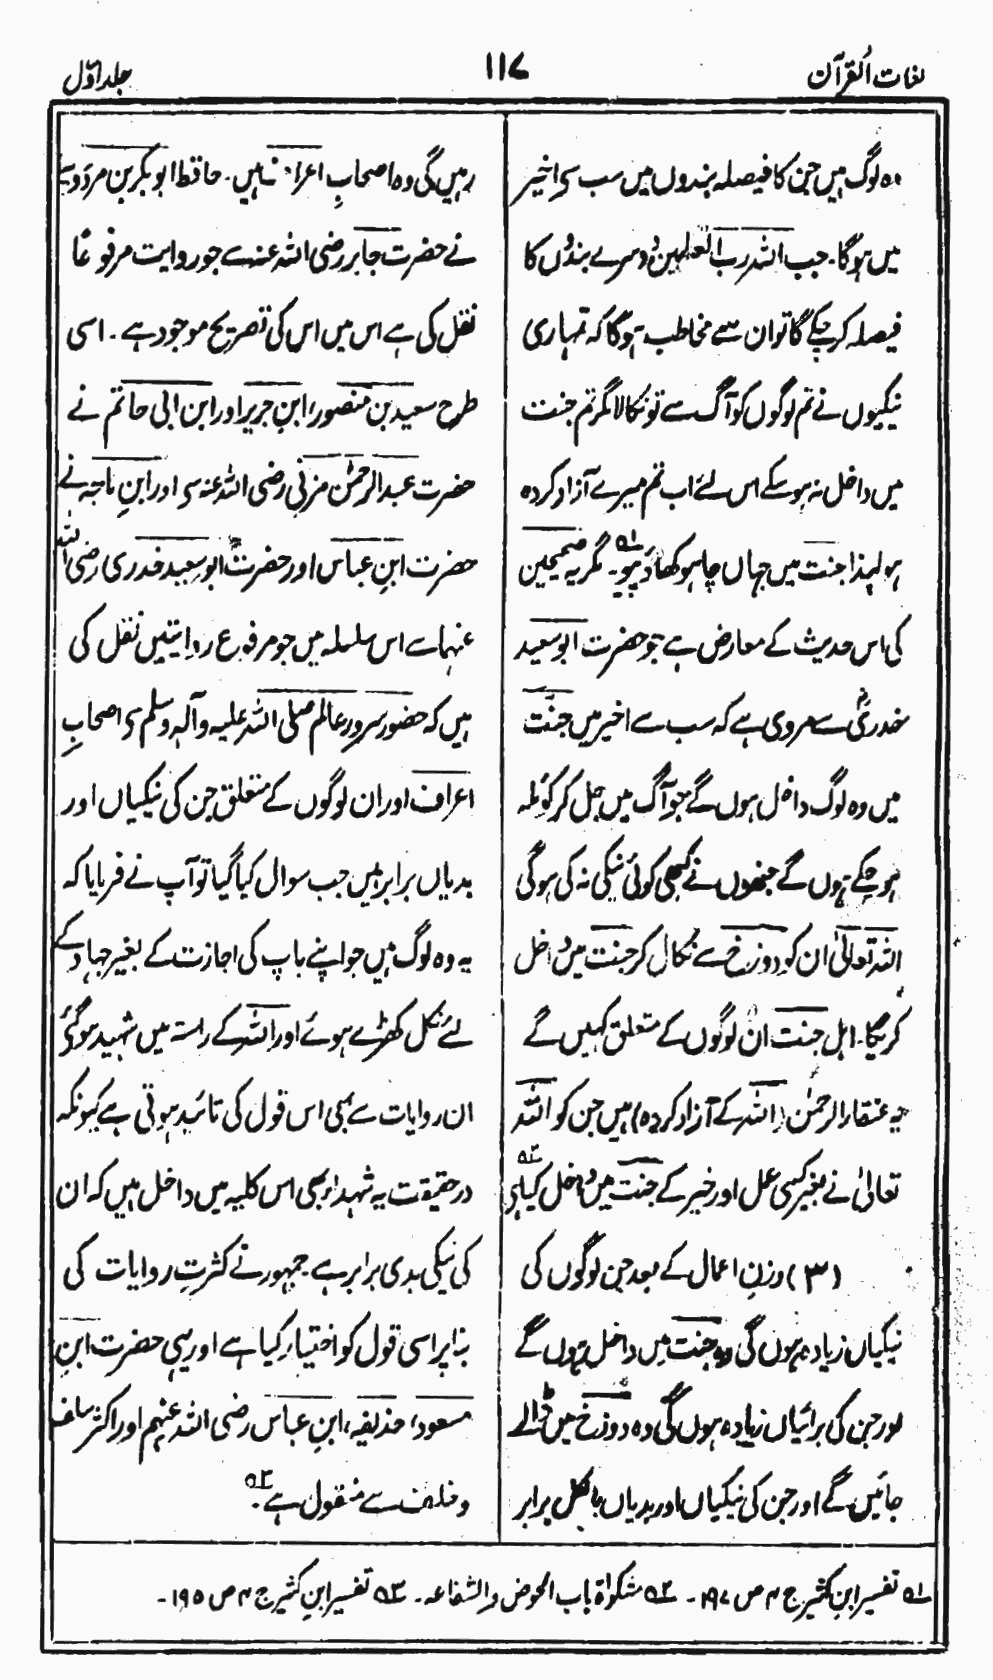 لغات القرآن
۱۱۷
جلد اوّل
وہ لوگ ہیں جن کا فیصلہ بندوں میں سب سے اخیر
میں ہوگا۔ جب اللہ رب العٰلمین دوسرے بندوں کا
فیصلہ کر چکے گا تو ان سے مخاطب ہوگا کہ تمہاری
نیکیوں نے تم لوگوں کو آگ سے تو نکالا مگر تم جنت
میں داخل نہ ہو سکے اس لئے اب تم میرے آزاد کردہ
ہو لہذا جنت میں جہاں چاہو کھاؤ پیو۔ ۱؎ مگر یہ صحیحین
کی اس حدیث کے معارض ہے جو حضرت ابو سعید
خدریؓ سے مروی ہے کہ سب سے اخیر میں جنت
میں وہ لوگ داخل ہوں گے جو آگ میں جل کر کوئلہ
ہو چکے ہوں گے جنھوں نے کبھی کوئی نیکی نہ کی ہوگی
اللہ تعالیٰ ان کو دوزخ سے نکال کر جنت میں داخل
کریگا۔ اہل جنت ان لوگوں کے متعلق کہیں گے
یہ عتقاء الرحمٰن (اللہ کے آزاد کردہ) ہیں جن کو اللہ
تعالیٰ نے بغیر کسی عمل اور خیر کے جنت میں داخل کیا ہے ۲؎
(۳) وزنِ اعمال کے بعد جن لوگوں کی
نیکیاں زیادہ ہوں گی وہ جنت میں داخل ہوں گے
اور جن کی برائیاں زیادہ ہوں گی وہ دوزخ میں ڈالے
جائیں گے اور جن کی نیکیاں اور بدیاں بالکل برابر
رہیں گی وہ اصحابِ اعراف ہیں۔ حافظ ابو بکر بن مردویہ
نے حضرت جابر رضی اللہ عنہ سے جو روایت مرفوعًا
نقل کی ہے اس میں اس کی تصریح موجود ہے۔ اسی
طرح سعید بن منصور، ابن جریر اور ابن ابی حاتم نے
حضرت عبدالرحمٰن مزنی رضی اللہ عنہ سے اور ابنِ ماجہ نے
حضرت ابنِ عباس اور حضرت ابو سعید خدری رضی اللہ
عنہما سے اس سلسلہ میں جو مرفوع روایتیں نقل کی
ہیں کہ حضور سرورِ عالم صلی اللہ علیہ وآلہ وسلم سے اصحابِ
اعراف اور ان لوگوں کے متعلق جن کی نیکیاں اور
بدیاں برابر ہیں جب سوال کیا گیا تو آپ نے فرمایا کہ
یہ وہ لوگ ہیں جو اپنے باپ کی اجازت کے بغیر جہاد کے
لئے نکل کھڑے ہوئے اور اللہ کے راستہ میں شہید ہو گئے
ان روایات سے بھی اس قول کی تائید ہوتی ہے کیونکہ
درحقیقت یہ شہداء بھی اس کلیہ میں داخل ہیں کہ ان
کی نیکی بدی برابر ہے۔ جمہور نے کثرتِ روایات کی
بنا پر اسی قول کو اختیار کیا ہے اور یہی حضرت ابنِ
مسعود، حذیفہ، ابنِ عباس رضی اللہ عنہم اور اکثر سلف
و خلف سے منقول ہے۔ ۳؎
۱؎ تفسیر ابن کثیر ج ۴ ص ۱۹۷۔ ۲؎ مشکوٰۃ باب الحوض والشفاعہ۔ ۳؎ تفسیر ابن کثیر ج ۴ ص ۱۹۵۔